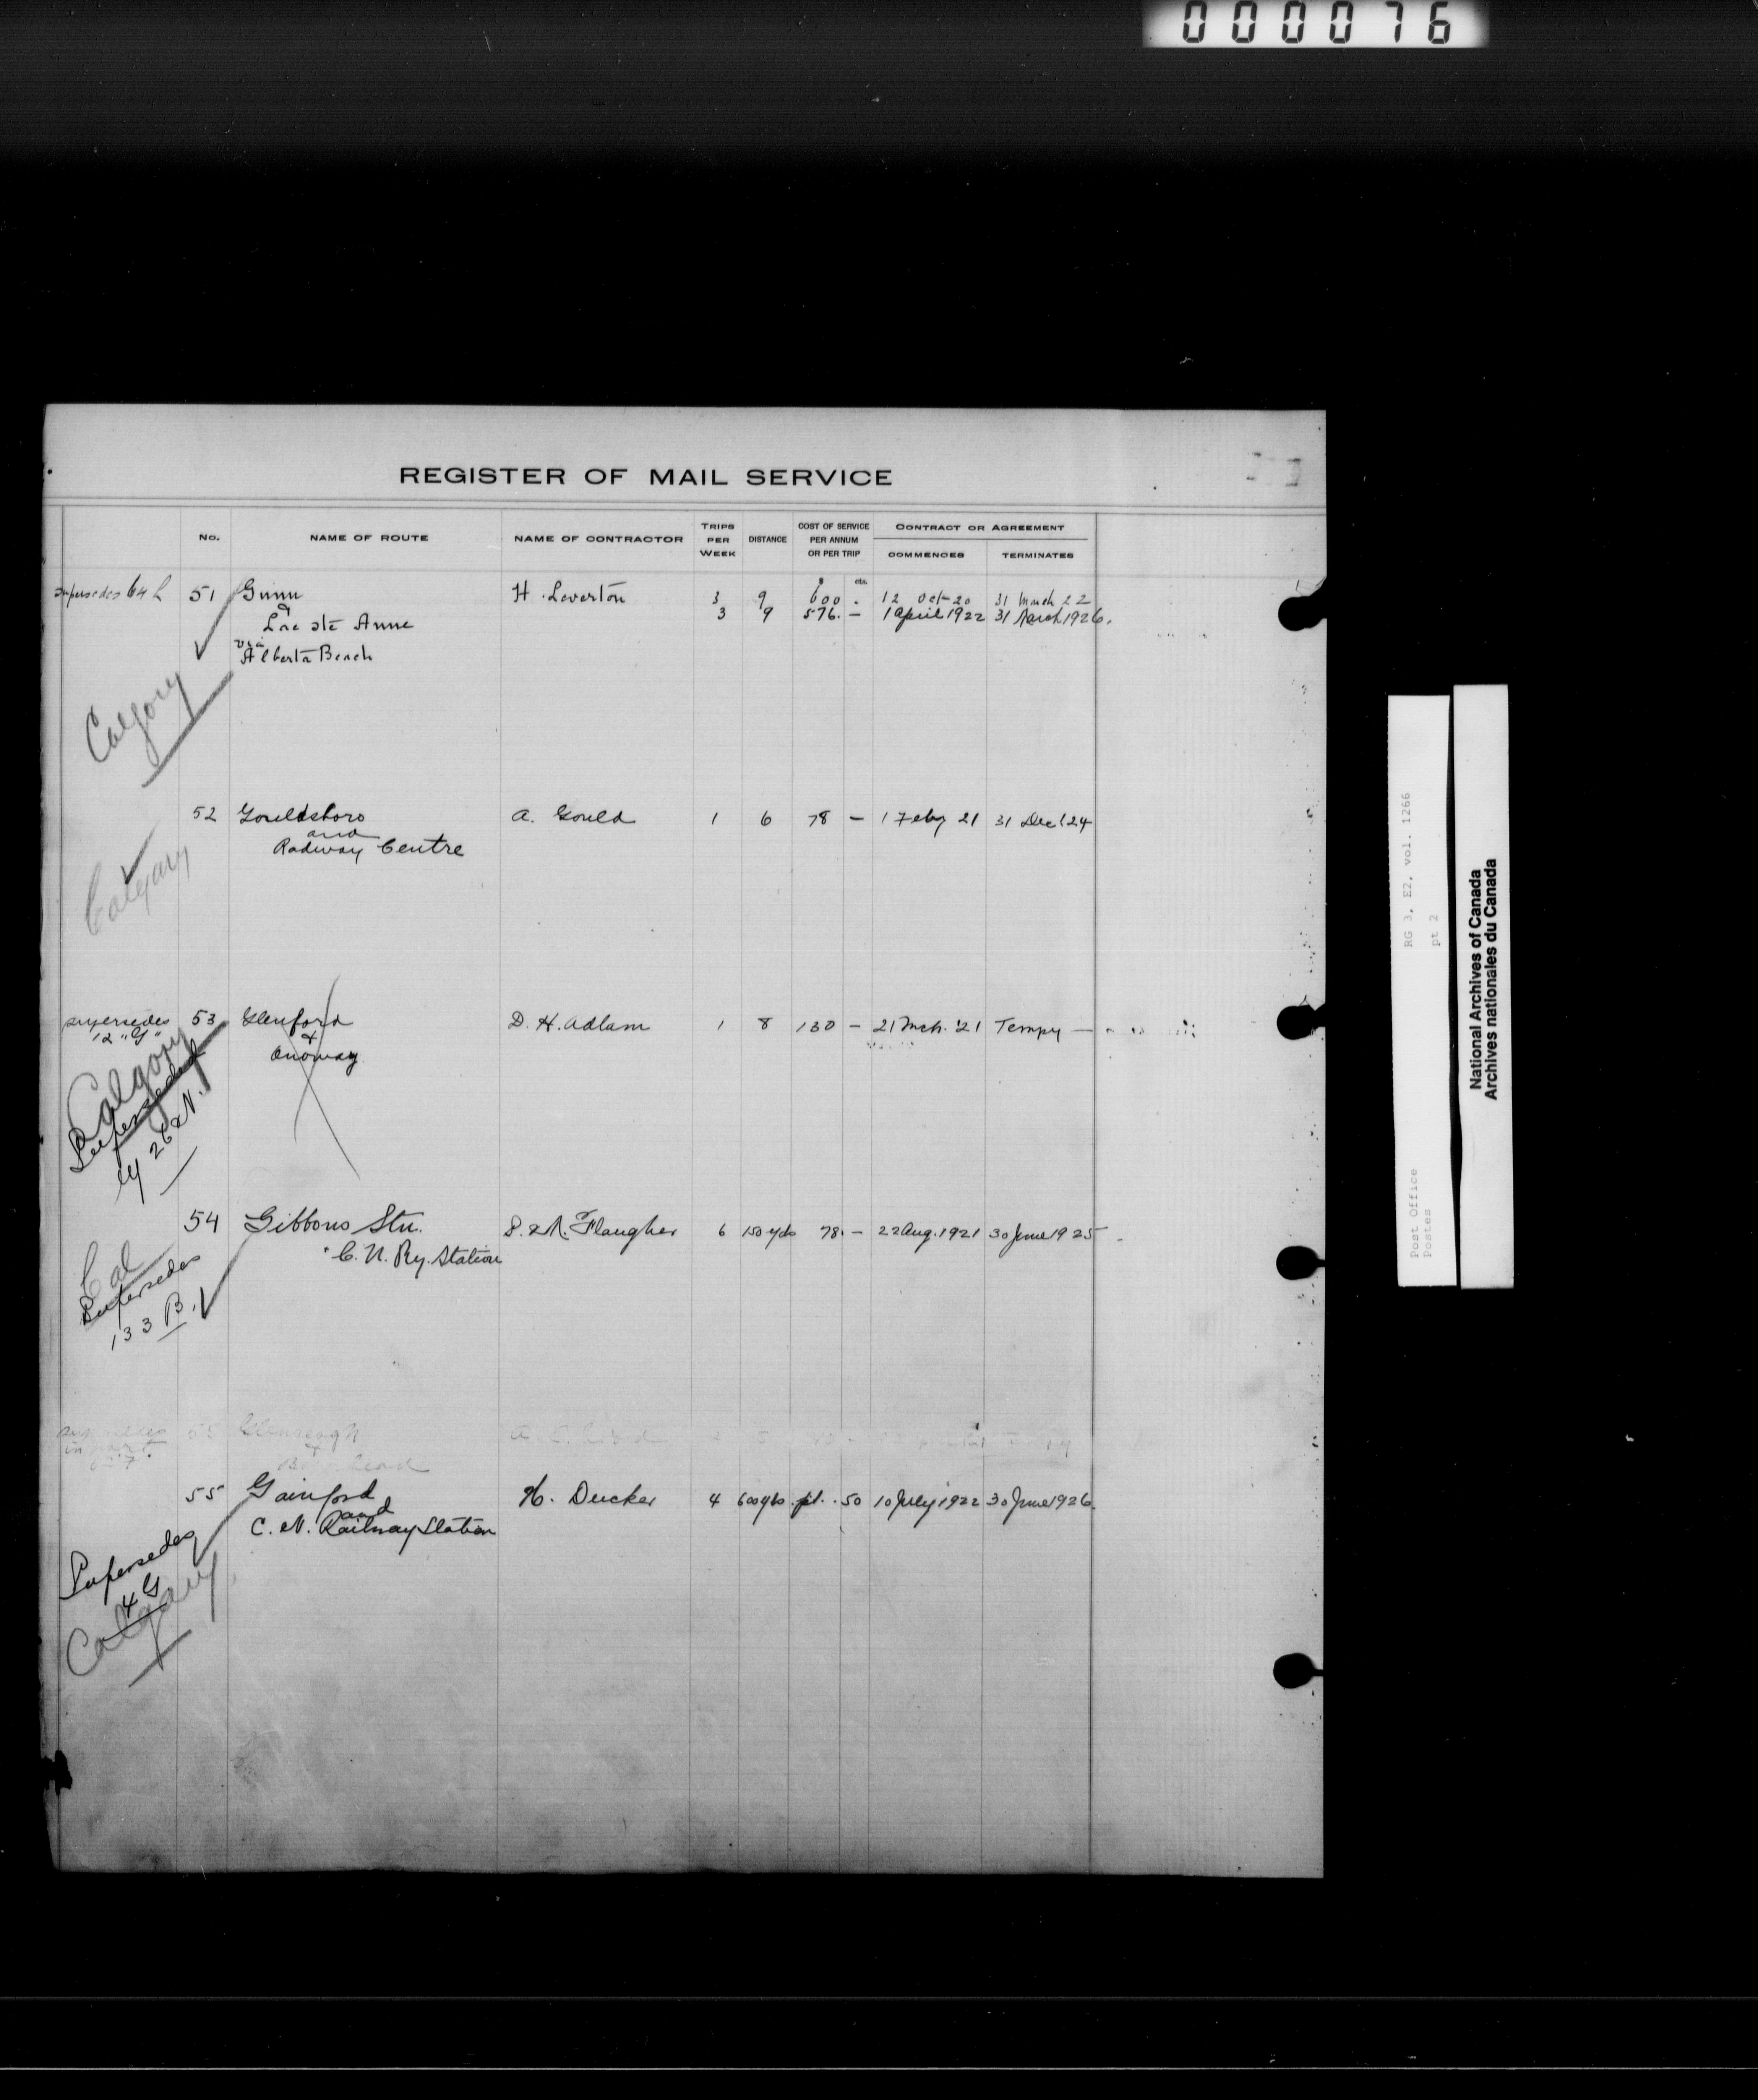 000076
REGISTER OF MAIL SERVICE
No. NAME OF ROUTE NAME OF CONTRACTOR TRIPS PER WEEK DISTANCE COST OF SERVICE PER ANNUM OR PER TRIP CONTRACT OR AGREEMENT COMMENCES TERMINATES
$ cts.
supersedes 64 L 51 Gunn H. Leverton 3 9 600 . 12 Oct 20 31 March 22
& 3 9 576. — 1 April 1922 31 March 1926.
Lac Ste Anne
via
Alberta Beach
Calgary
52 Gouldsboro A. Gould 1 6 78 — 1 Feby 21 31 Dec 24
and
Radway Centre
Calgary
supersedes 53 Glenford D. H. Adlam 1 8 130 — 21 Mch. '21 Tempy —
12 "G" &
Onoway
Calgary
Superseded
by 26 N.
54 Gibbons Stn. Flaugher 6 150 yds 78. — 22 Aug. 1921 30 June 1925
" C. N. Ry. Station
Cal
Supersedes
133 B.
supersedes 55
in part
&
55 Gainford H. Ducker 4 600 yds p.t. .50 10 July 1922 30 June 1926.
and
C. N. Railway Station
Supersedes
4 G
Calgary
RG 3, E2, vol. 1266
pt 2
Post Office
Postes
National Archives of Canada
Archives nationales du Canada